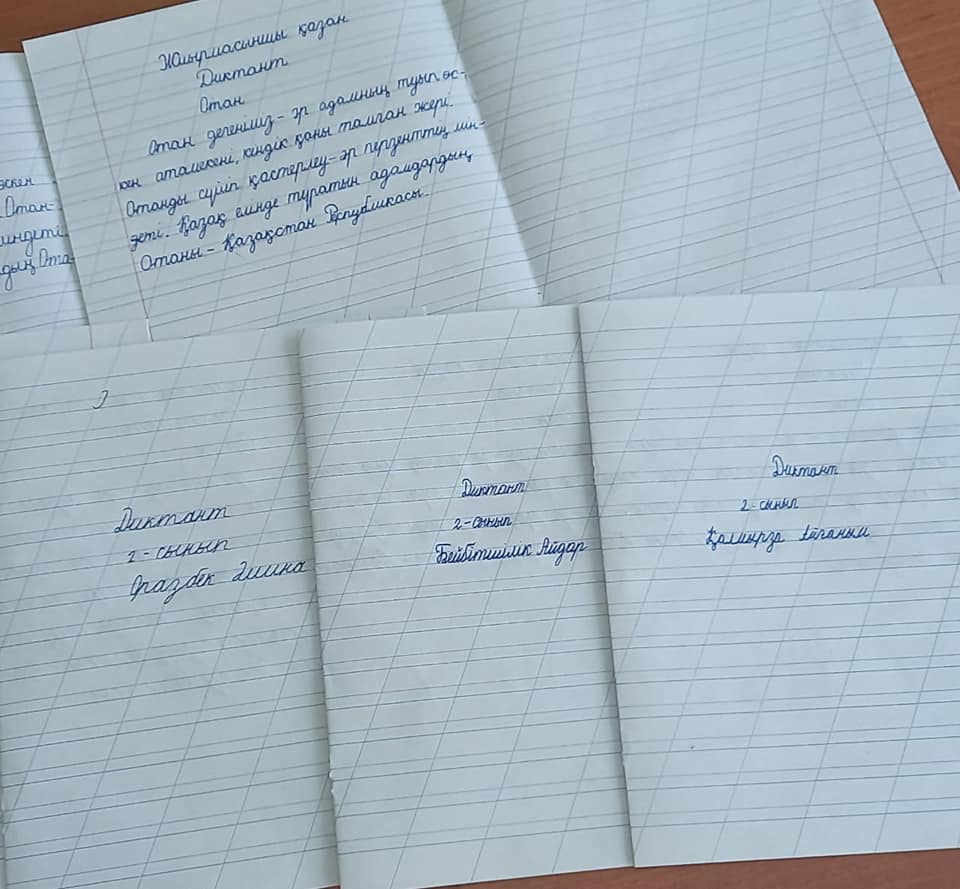 Жиырмасыншы қазан
Диктант
Отан
Отан дегеніміз – әр адамның туып өс-
кен атамекені, кіндік қаны тамған жері.
Отанды сүйіп қастерлеу – әр перзенттің мін-
деті. Қазақ елінде тұратын адамдардың
Отаны – Қазақстан Республикасы.
өскен
Отан-
міндеті.
дың Ота-
Диктант
2-сынып
Оразбек Әмина
Диктант
2-сынып
Бейбітшілік Айдар
Диктант
2-сынып